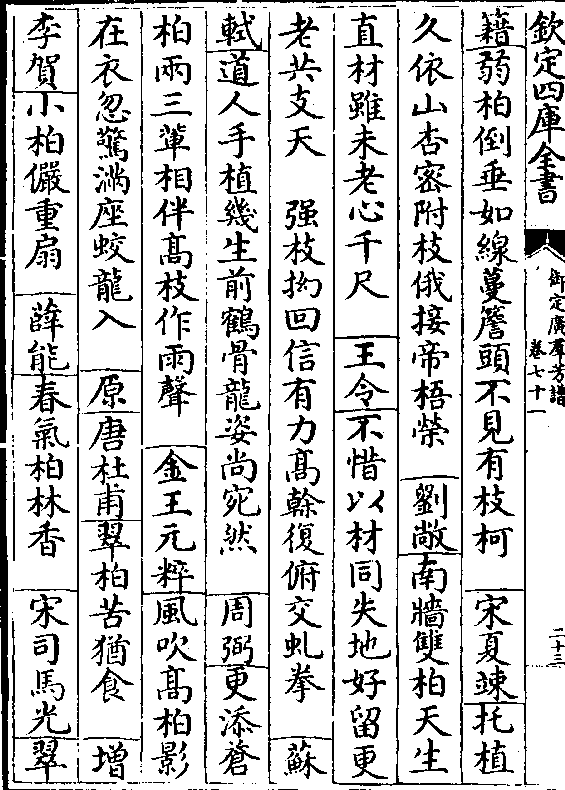 欽定四庫全書
御定廣羣芳譜
卷七十
二十三
籍弱柏倒垂如線蔓簷頭不見有枝柯　宋夏竦托植
久依山杏密附枝俄接帝梧榮　劉敞南牆雙柏天生
直材雖未老心千尺　王令不惜以材同失地好留更
老共支天　强枝拗回信有力髙榦復俯交虬拳　蘇
軾道人手植幾生前鶴骨龍姿尚宛然　周弼更添蒼
柏兩三軰相伴髙枝作雨聲　金王元粹風吹髙柏影
在衣忽驚滿座蛟龍入　原唐杜甫翠柏苦猶食　增
李賀小柏儼重扇　薛能春氣柏林香　宋司馬光翠